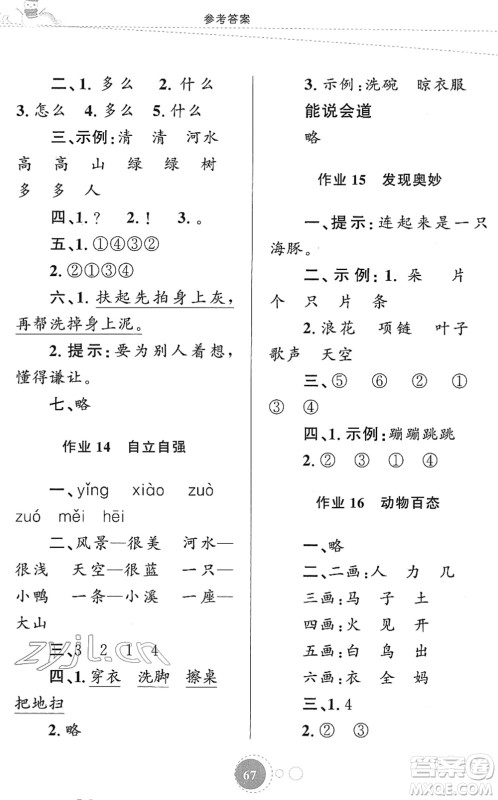 参考答案
二、1. 多么 2. 什么
3. 怎么 4. 多么 5. 什么
三、示例:清 清 河水
高 高 山 绿 绿 树
多 多 人
四、1. ? 2. ! 3. 。
五、1. ①④③②
2. ②①③④
六、1. 扶起先拍身上灰,
再帮洗掉身上泥。
2. 提示:要为别人着想,
懂得谦让。
七、略
作业 14 自立自强
一、yǐng xiào zuò
zuó měi hēi
二、风景—很美 河水—
很浅 天空—很蓝 一只—
小鸭 一条—小溪 一座—
大山
三、3 2 1 4
四、1. 穿衣 洗脚 擦桌
把地扫
2. 略
3. 示例:洗碗 晾衣服
能说会道
略
作业 15 发现奥妙
一、提示:连起来是一只
海豚。
二、示例:1. 朵 片
个 只 片 条
2. 浪花 项链 叶子
歌声 天空
三、⑤ ⑥ ② ①
③ ④
四、1. 示例:蹦蹦跳跳
2. ② ①
作业 16 动物百态
一、略
二、二画:人 力 几
三画:马 子 土
四画:火 见 开
五画:白 鸟 出
六画:衣 网 成
三、1. 4
2. ② ① ③
67
zyjl.cn
作业精灵